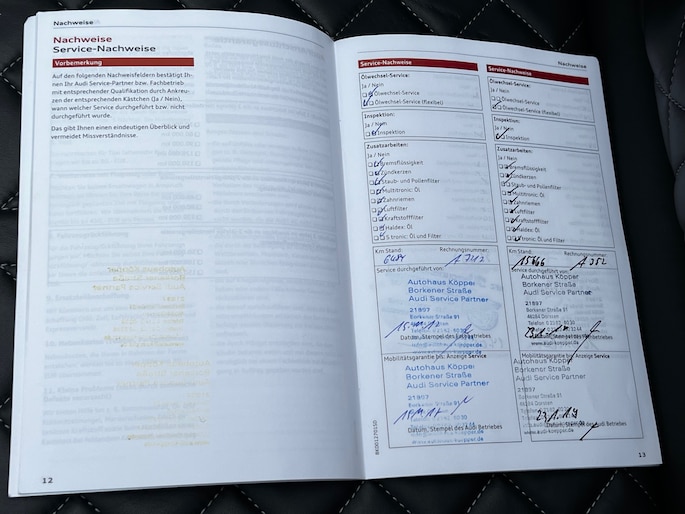 Nachweise
Nachweise
Service-Nachweise
Vorbemerkung
Auf den folgenden Nachweisfeldern bestätigt Ih-
nen Ihr Audi Service-Partner bzw. Fachbetrieb
mit entsprechender Qualifikation durch Ankreu-
zen der entsprechenden Kästchen (Ja / Nein),
wann welcher Service durchgeführt bzw. nicht
durchgeführt wurde.
Das gibt Ihnen einen eindeutigen Überblick und
vermeidet Missverständnisse.
12
Nachweise
Service-Nachweise
Ölwechsel-Service:
Ja / Nein
Ölwechsel-Service
Ölwechsel-Service (flexibel)
Inspektion:
Ja / Nein
Inspektion
Zusatzarbeiten:
Ja / Nein
Bremsflüssigkeit
Zündkerzen
Staub- und Pollenfilter
Multitronic: Öl
Zahnriemen
Luftfilter
Kraftstofffilter
Haldex: Öl
S tronic: Öl und Filter
Km Stand: Rechnungsnummer:
Service durchgeführt von:
Autohaus Köpper
Borkener Straße
Audi Service Partner
21897
Borkener Straße 91
46284 Dorsten
Datum, Stempel des Audi Betriebes
Mobilitätsgarantie bis: Anzeige Service
Autohaus Köpper
Borkener Straße
Audi Service Partner
21897
Datum, Stempel des Audi Betriebes
www.audi-koepper.de
Service-Nachweise
Ölwechsel-Service:
Ja / Nein
Ölwechsel-Service
Ölwechsel-Service (flexibel)
Inspektion:
Ja / Nein
Inspektion
Zusatzarbeiten:
Ja / Nein
Bremsflüssigkeit
Zündkerzen
Staub- und Pollenfilter
Multitronic: Öl
Zahnriemen
Luftfilter
Kraftstofffilter
Haldex: Öl
S tronic: Öl und Filter
Km Stand: Rechnungsnummer:
Service durchgeführt von:
Autohaus Köpper
Borkener Straße
Audi Service Partner
21897
Borkener Straße 91
46284 Dorsten
Datum, Stempel des Audi Betriebes
www.audi-koepper.de
Mobilitätsgarantie bis: Anzeige Service
Autohaus Köpper
Borkener Straße
Audi Service Partner
21897
Borkener Straße 91
46284 Dorsten
23.1.19
Datum, Stempel des Audi Betriebes
www.audi-koepper.de
13